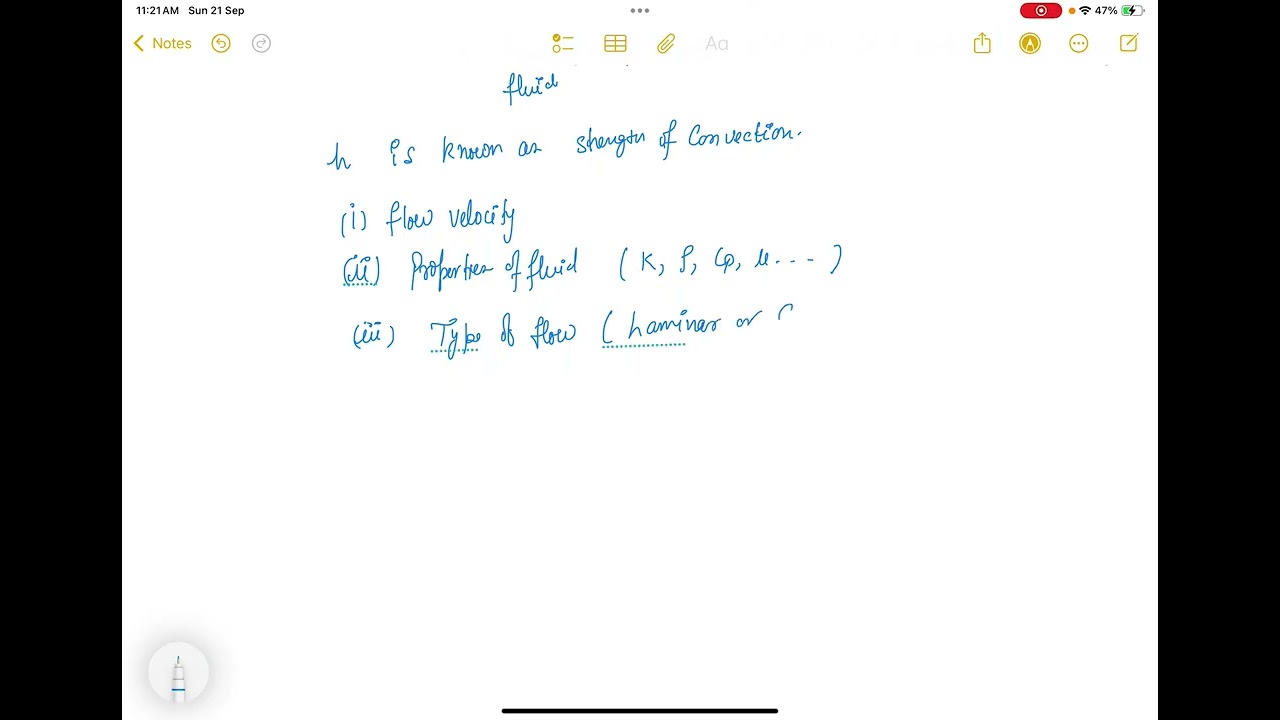 11:21 AM Sun 21 Sep
47%
Notes
Aa
fluid
h is known as strength of Convection.
(i) flow velocity
(ii) Properties of fluid (K, ρ, Cp, μ...-)
(iii) Type of flow (Laminar or